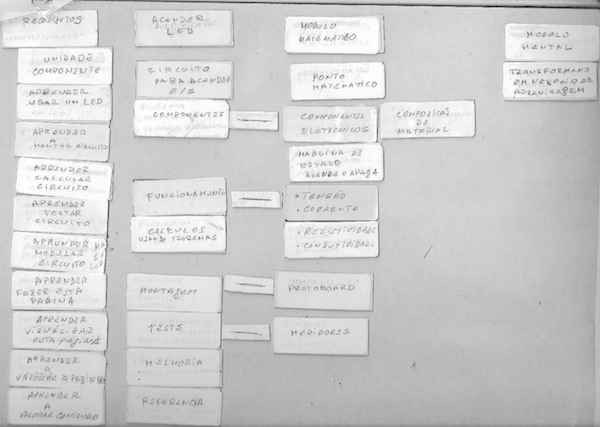 REQUISITOS
UNIDADE
COMPONENTE
APRENDER
USAR UM LED
APRENDER
A
MONTAR CIRCUITO
APRENDER
CALCULAR
CIRCUITO
APRENDER
TESTAR
CIRCUITO
APRENDER
MODULAR
CIRCUITO
LED
APRENDER
FAZER ESTA
PAGINA
APRENDER
VISUALIZAR
ESTA PAGINA
APRENDER
A
VALORAR A PAGINA
APRENDER
A
VALORAR CONTEUDO
ACENDER
LED
CIRCUITO
PARA ACENDER
E/S
COMPONENTES
FUNCIONAMENTO
CALCULOS
USANDO TEOREMAS
MONTAGEM
TESTE
MELHORIA
REFERENCIA
MODELO
MATEMATICO
PONTO
MATEMATICO
COMPONENTES
ELETRONICOS
COMPOSIÇÃO
DO
MATERIAL
MAQUINA DE
ESTADO
ACENDE E APAGA
• TENSÃO
• CORRENTE
• RESISTIVIDADE
• CONDUTIVIDADE
PROTOBOARD
MEDIDORES
MODELO
MENTAL
TRANSFORMANDO
EM NEGOCIO DE
APRENDIZAGEM